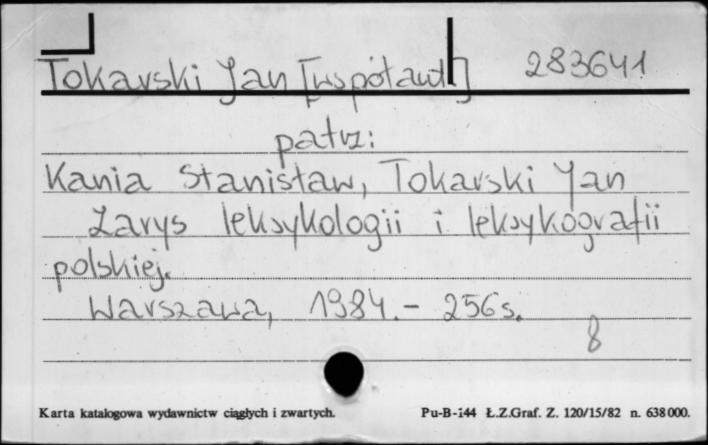 Tokarski Jan [współaut.] 283641
patrz:
Kania Stanisław, Tokarski Jan
Zarys leksykologii i leksykografii
polskiej.
Warszawa, 1984.- 256 s.
8
Karta katalogowa wydawnictw ciągłych i zwartych. Pu-B-144 Ł.Z.Graf. Z. 120/15/82 n. 638000.